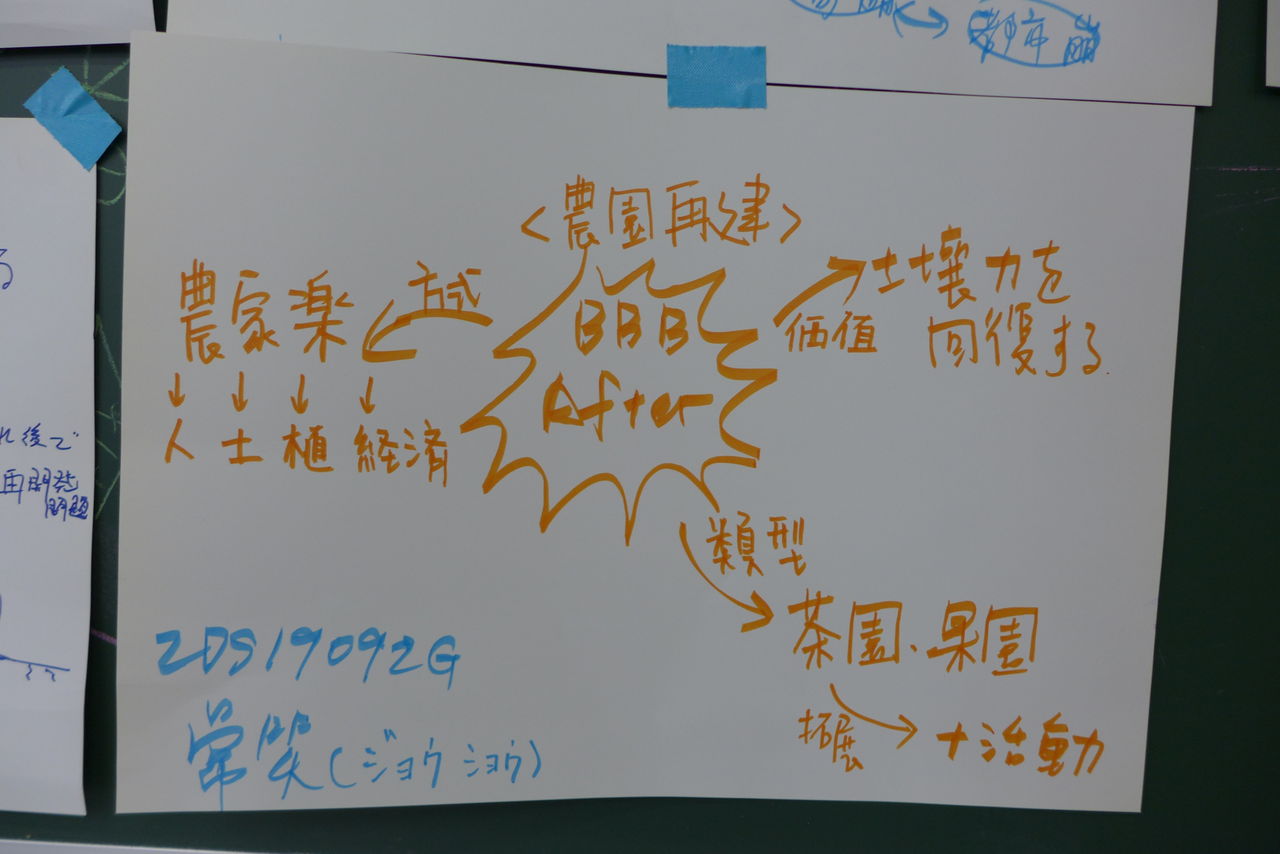 都市
<農園再建>
BBB
After
方式
農家楽
↓ ↓ ↓ ↓
人 土 植 経済
価値
土壌力を
回復する
類型
茶園、果園
拓展
+活動
2DS19092G
常笑(ジョウショウ)
る
後で
再開発
問題